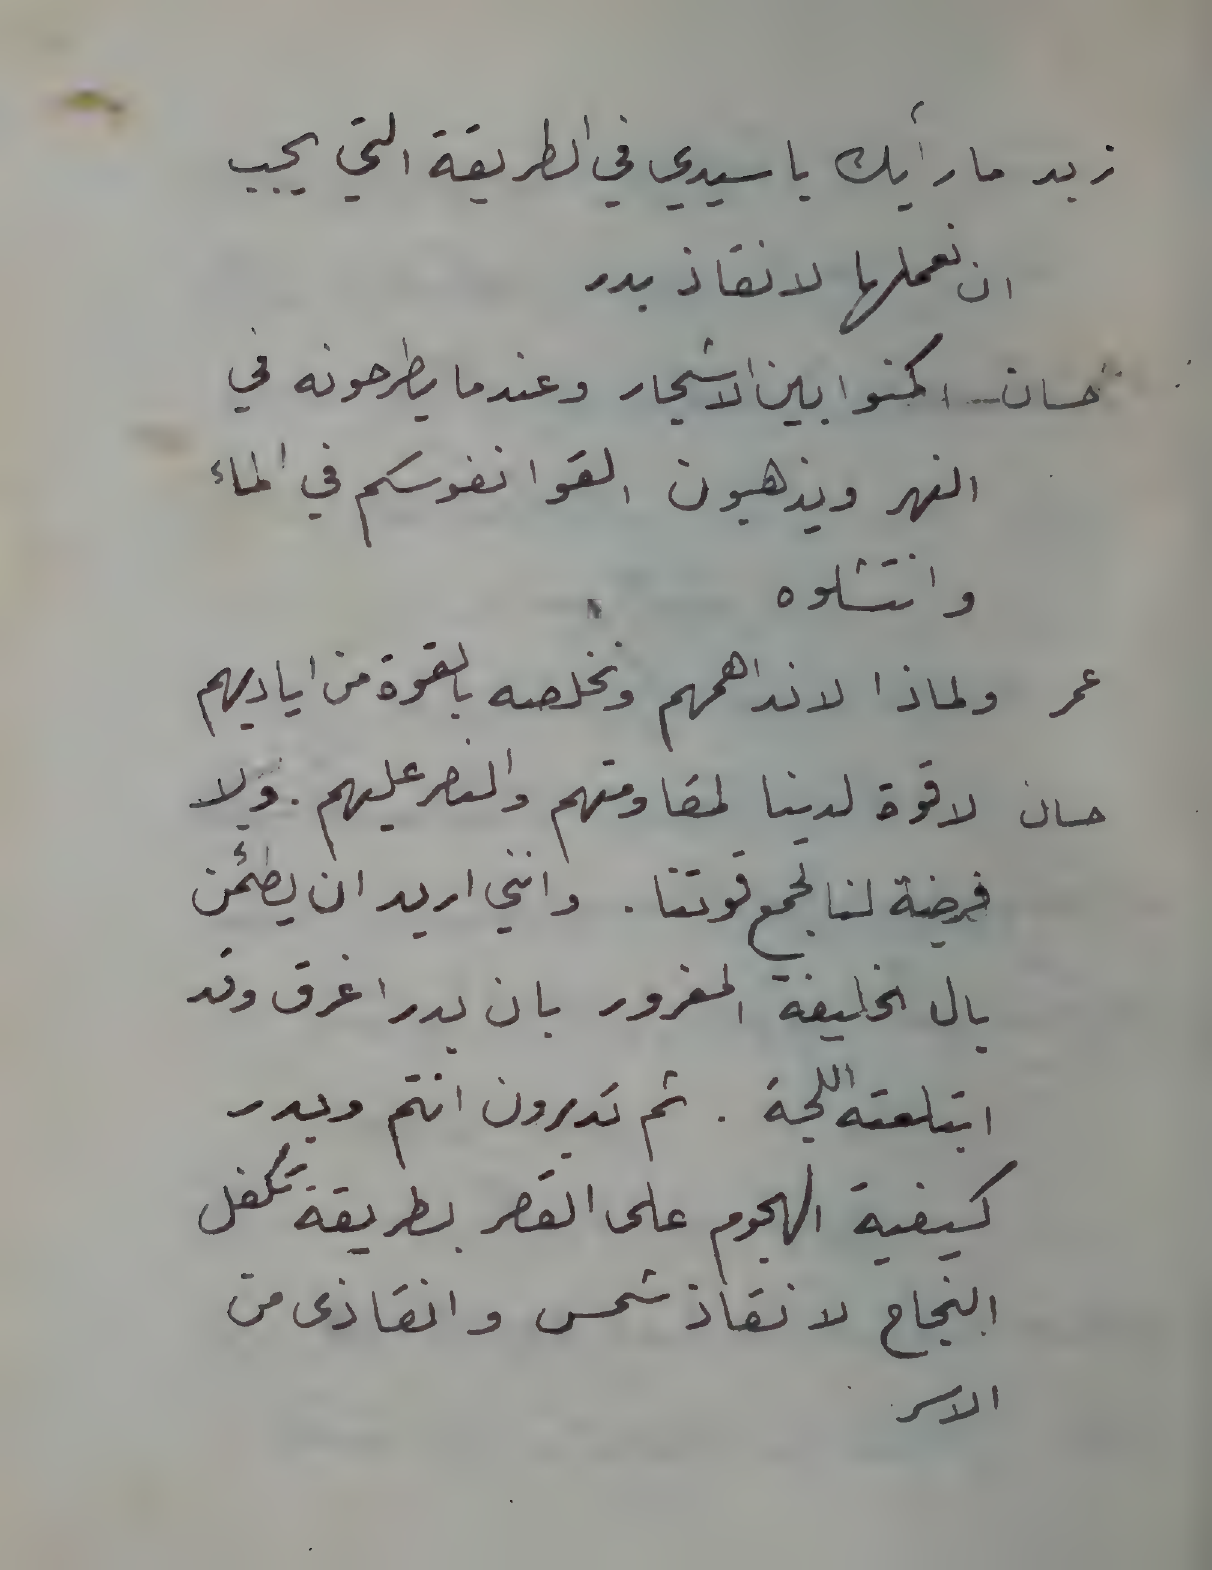 زيد ما رأيك يا سيدي في الطريقة التي يجب
ان نعملها لانقاذ بدر
حسان - اكمنوا بين الاشجار وعندما يطرحونه في
النهر ويذهبون القوا نفوسكم في الماء
وانتشلوه
عمر ولماذا لا نداهمهم ونخلصه بالقوة من اياديهم
حسان لا قوة لدينا لمقاومتهم والنصر عليهم . ولا
فرصة لنا لجمع قوتنا . وانني اريد ان يطمئن
بال الخليفة المغرور بان بدرا غرق وقد
ابتلعته اللجة . ثم تديرون انتم وبدر
كيفية الهجوم على القصر بطريقة تكفل
النجاح لانقاذ شمس وانقاذى من
الاسر